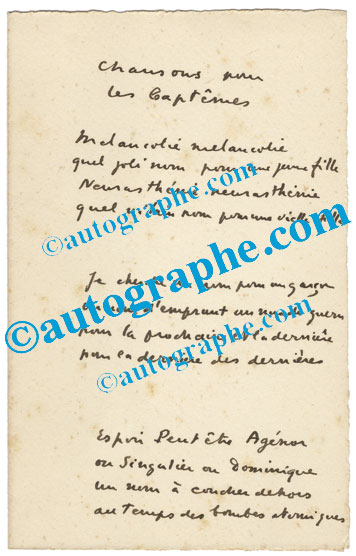 Chansons pour
les baptêmes
Melancolie melancolie
quel joli nom pour une jeune fille
Neurasthénie neurasthénie
quel vilain nom pour une vieille fille
©autographe.com
Je cherche un nom pour un garçon
un nom d'emprunt un nom de guerre
©autographe.com
pour la prochaine et la dernière
pour la dernière des dernières
©autographe.com
Espoir Peut être Agénor
ou Singulier ou Dominique
un nom à coucher dehors
au temps des bombes atomiques